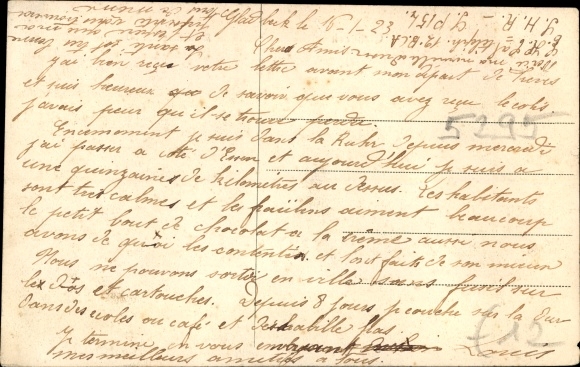 Gladbeck le 16-1-23
Chers Amis
j'ai bon reçu votre lettre avant mon départ de Trèves
et suis heureux que de savoir que vous avez reçu le colis
j'avais peur qu'il se trouve perdu.
Encemoment je suis dans la Ruhr depuis mercredi
j'ai passer a coté d'Essen et aujourd'hui je suis a
une quinzaines de kilometres au dessus. Les habitants
sont tres calmes et les fraülens aiment beaucoup
le petit bout de chocolat a la crême aussi nous
avons de quoi les contenter et l'on faits de son mieux
Nous ne pouvons sortir en ville sans fusil sur
le dos et cartouches. Depuis 8 jours je couche sur la dur
dans des ecoles ou café et deshabille pas.
Je termine en vous envoyant
mes meilleurs amitiés a tous. Louis
5295
£12